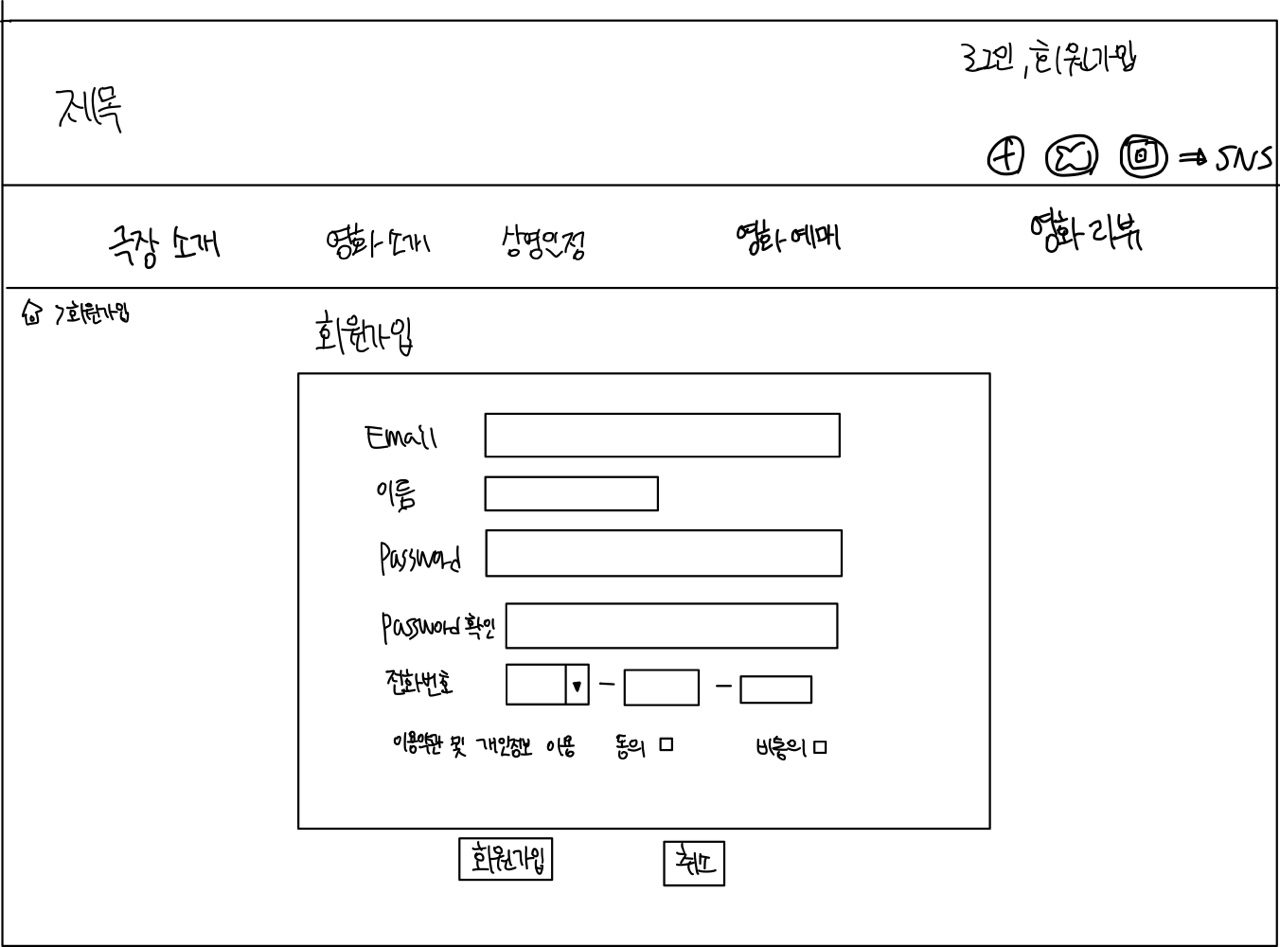 로그인, 회원가입
제목
⇒ SNS
극장 소개 영화 소개 상영일정 영화 예매 영화 리뷰
>회원가입
회원가입
Email
이름
Password
Password 확인
전화번호 - -
이용약관 및 개인정보 이용 동의 비동의
회원가입 취소